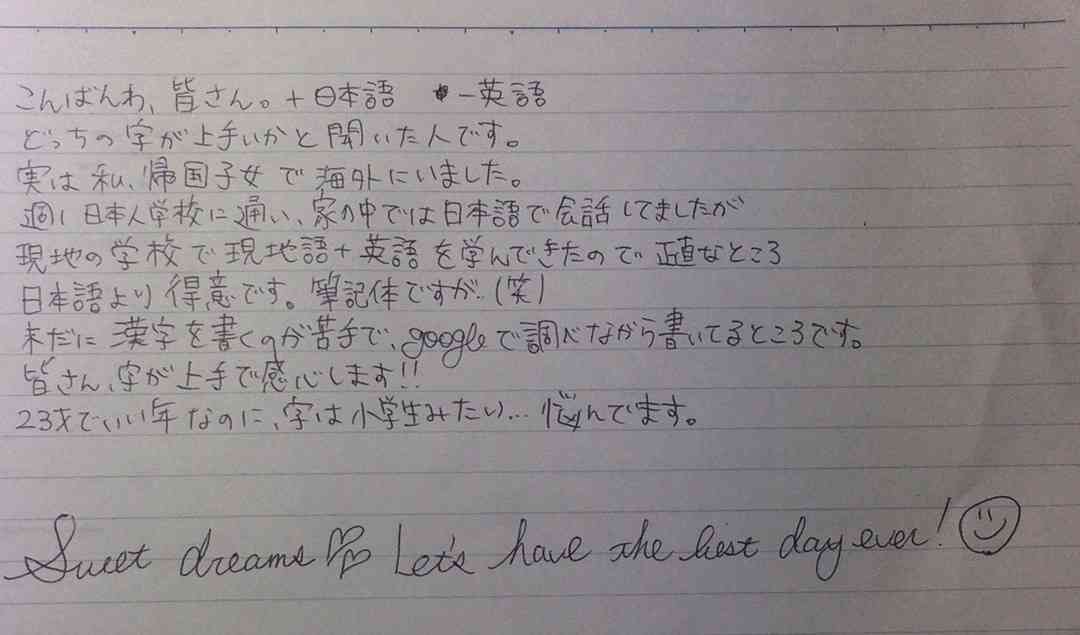 こんばんわ、皆さん。+日本語 -英語
どっちの字が上手いかと聞いた人です。
実は私、帰国子女で海外にいました。
週1日本人学校に通い、家の中では日本語で会話してましたが
現地の学校で現地語+英語を学んできたので正直なところ
日本語より得意です。筆記体ですが..(笑)
未だに漢字を書くのが苦手で、googleで調べながら書いてるところです。
皆さん、字が上手で感心します!!
23才でいい年なのに、字は小学生みたい... 悩んでます。
Sweet dreams♡♡ Let's have the best day ever!☺